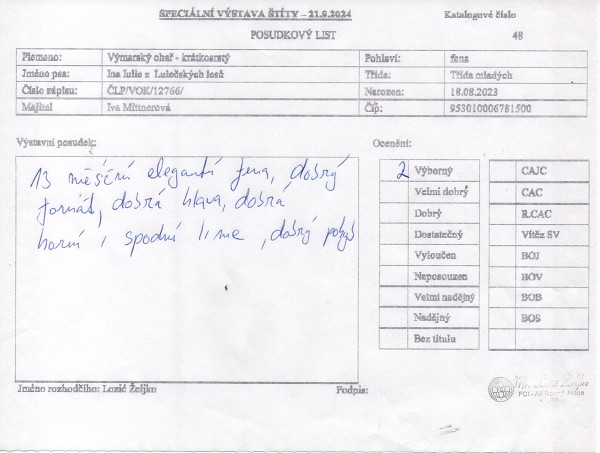 SPECIÁLNÍ VÝSTAVA ŠTÍTY – 21.9.2024
Katalogové číslo
POSUDKOVÝ LIST
48
Plemeno: Výmarský ohař - krátkosrstý Pohlaví: fena
Jméno psa: Ina Iulie z Lutečských lesů Třída: Třída mladých
Číslo zápisu: ČLP/VOK/12766/ Narozen: 18.08.2023
Majitel Iva Mittnerová Čip: 953010006781500
Výstavní posudek:
13 měsíční elegantí fena, dobrý
formát, dobrá hlava, dobrá
horní i spodní linie, dobrý pohyb
Ocenění:
2 Výborný CAJC
Velmi dobrý CAC
Dobrý R.CAC
Dostatečný Vítěz SV
Vyloučen BOJ
Neposouzen BOV
Velmi nadějný BOB
Nadějný BOS
Bez titulu
Jméno rozhodčího: Lozić Željko Podpis:
FCI - All Round Judge